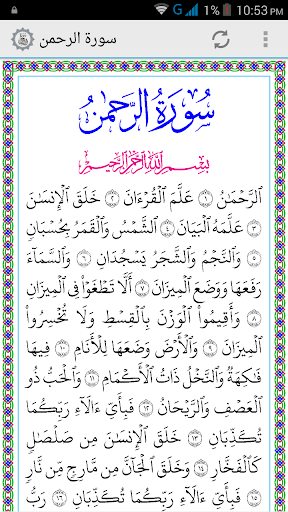 G 1% 10:53 PM
سورة الرحمن
سُورَةُ الرَّحْمٰنُ
بِسْمِ اللَّهِ الرَّحْمَٰنِ الرَّحِيمِ
الرَّحْمَٰنُ ١ عَلَّمَ الْقُرْءَانَ ٢ خَلَقَ الْإِنسَٰنَ
٣ عَلَّمَهُ الْبَيَانَ ٤ الشَّمْسُ وَالْقَمَرُ بِحُسْبَانٍ
٥ وَالنَّجْمُ وَالشَّجَرُ يَسْجُدَانِ ٦ وَالسَّمَآءَ
رَفَعَهَا وَوَضَعَ الْمِيزَانَ ٧ أَلَّا تَطْغَوْا۟ فِى الْمِيزَانِ
٨ وَأَقِيمُوا۟ الْوَزْنَ بِالْقِسْطِ وَلَا تُخْسِرُوا۟
الْمِيزَانَ ٩ وَالْأَرْضَ وَضَعَهَا لِلْأَنَامِ ١٠ فِيهَا
فَٰكِهَةٌ وَالنَّخْلُ ذَاتُ الْأَكْمَامِ ١١ وَالْحَبُّ ذُو
الْعَصْفِ وَالرَّيْحَانُ ١٢ فَبِأَىِّ ءَالَآءِ رَبِّكُمَا
تُكَذِّبَانِ ١٣ خَلَقَ الْإِنسَٰنَ مِن صَلْصَٰلٍ
كَالْفَخَّارِ ١٤ وَخَلَقَ الْجَآنَّ مِن مَّارِجٍ مِّن نَّارٍ
١٥ فَبِأَىِّ ءَالَآءِ رَبِّكُمَا تُكَذِّبَانِ ١٦ رَبُّ